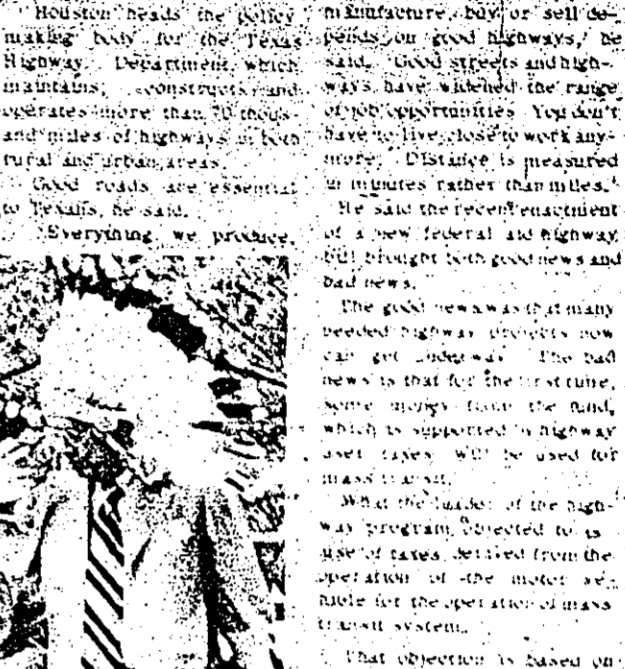 Houston heads the policy
making body for the Texas
Highway Department, which
maintains, constructs and
operates more than 70 thous-
and miles of highways in both
rural and urban areas.
Good roads are essential
to Texans, he said.
"Everything we produce,
manufacture, buy or sell de-
pends on good highways," he
said. "Good streets and high-
ways have widened the range
of job opportunities. You don't
have to live close to work any-
more. Distance is measured
in minutes rather than miles."
He said the recent enactment
of a new federal aid highway
bill brought both good news and
bad news.
The good news was that many
needed highway projects now
can get underway. The bad
news is that for the first time,
some money from the fund,
which is supported by highway
user taxes, will be used for
mass transit.
What the leader of the high-
way program objected to is
use of taxes derived from the
operation of the motor ve-
hicle for the operation of mass
transit system.
That objection is based on